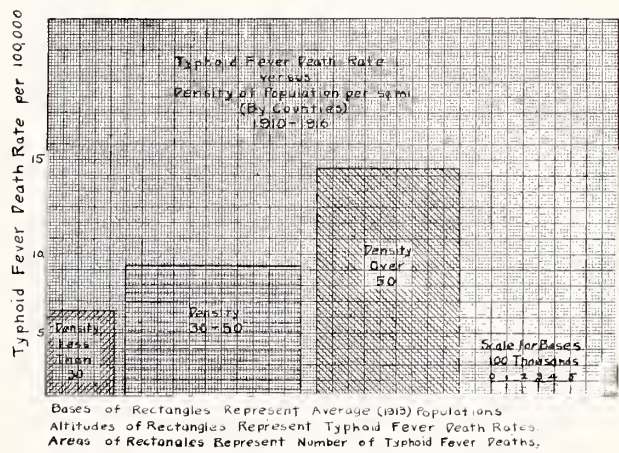 Typhoid Fever Death Rate
versus
Density of Population per sq mi
(By Counties)
1910-1916
Typhoid Fever Death Rate per 100,000
15
10
5
Density
Less
Than
30
Density
30-50
Density
Over
50
Scale for Bases
100 Thousands
0 1 2 3 4 5
Bases of Rectangles Represent Average (1913) Populations
Altitudes of Rectangles Represent Typhoid Fever Death Rates.
Areas of Rectangles Represent Number of Typhoid Fever Deaths.